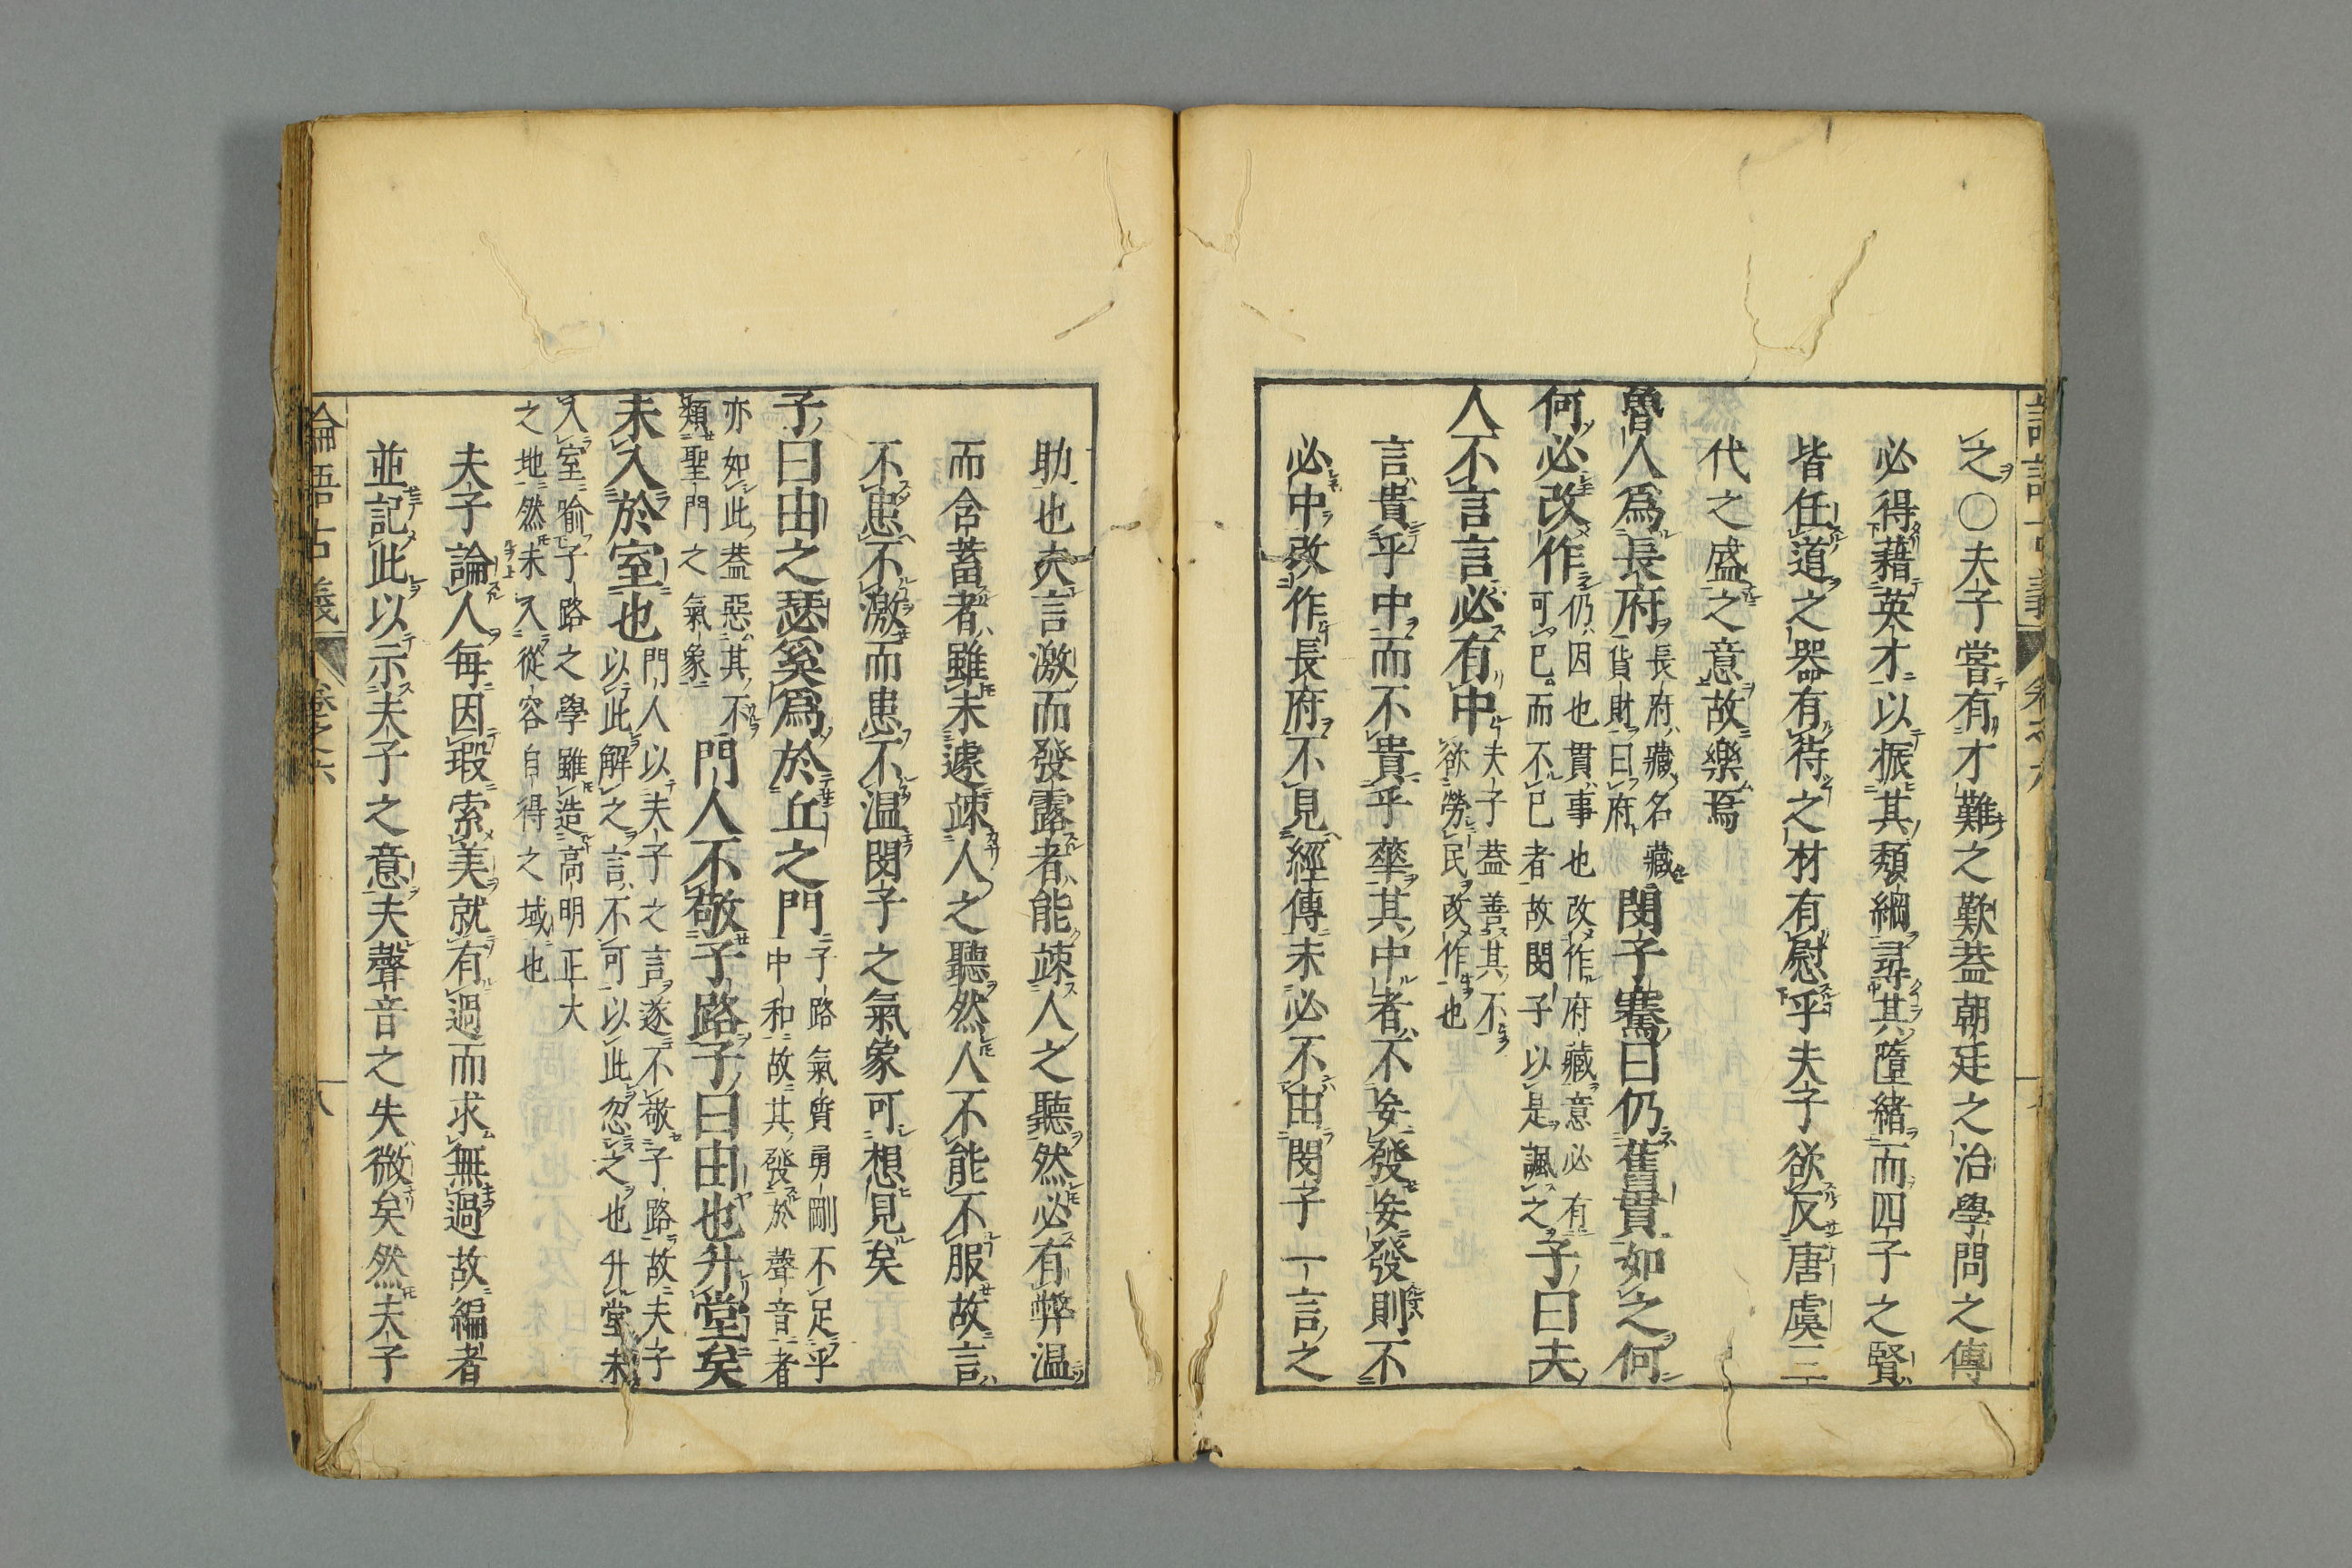 之○夫子嘗有才難之歎葢朝廷之治學問之傳
必得藉英才以振其頽綱尋其墮緒而四子之賢
皆任道之器有待之材有慰乎夫子欲反唐虞三
代之盛之意故樂焉
魯人爲長府
長府藏名藏
貨財曰府
閔子騫曰仍舊貫如之何
何必改作
仍因也貫事也改作府藏意必有
可已而不已者故閔子以是諷之
子曰夫
人不言言必有中
夫子葢善其不
欲勞民改作也
言貴乎中而不貴乎華其中者不妄發妄發則不
必中改作長府不見經傳未必不由閔子一言之
助也夫言激而發露者能竦人之聽然必有弊温
而含蓄者雖未遽竦人之聽然人不能不服故言
不患不激而患不温閔子之氣象可想見矣
子曰由之瑟奚爲於丘之門
子路氣質勇剛不足乎
中和故其發於聲音者
亦如此葢惡其不
類聖門之氣象
門人不敬子路子曰由也升堂矣
未入於室也
門人以夫子之言遂不敬子路故夫子
以此解之言不可以此忽之也升堂未
入室喻子路之學雖造高明正大
之地然未入從容自得之域也
夫子論人每因瑕索美就有過而求無過故編者
並記此以示夫子之意夫聲音之失微矣然夫子
論語古義 卷之六 八